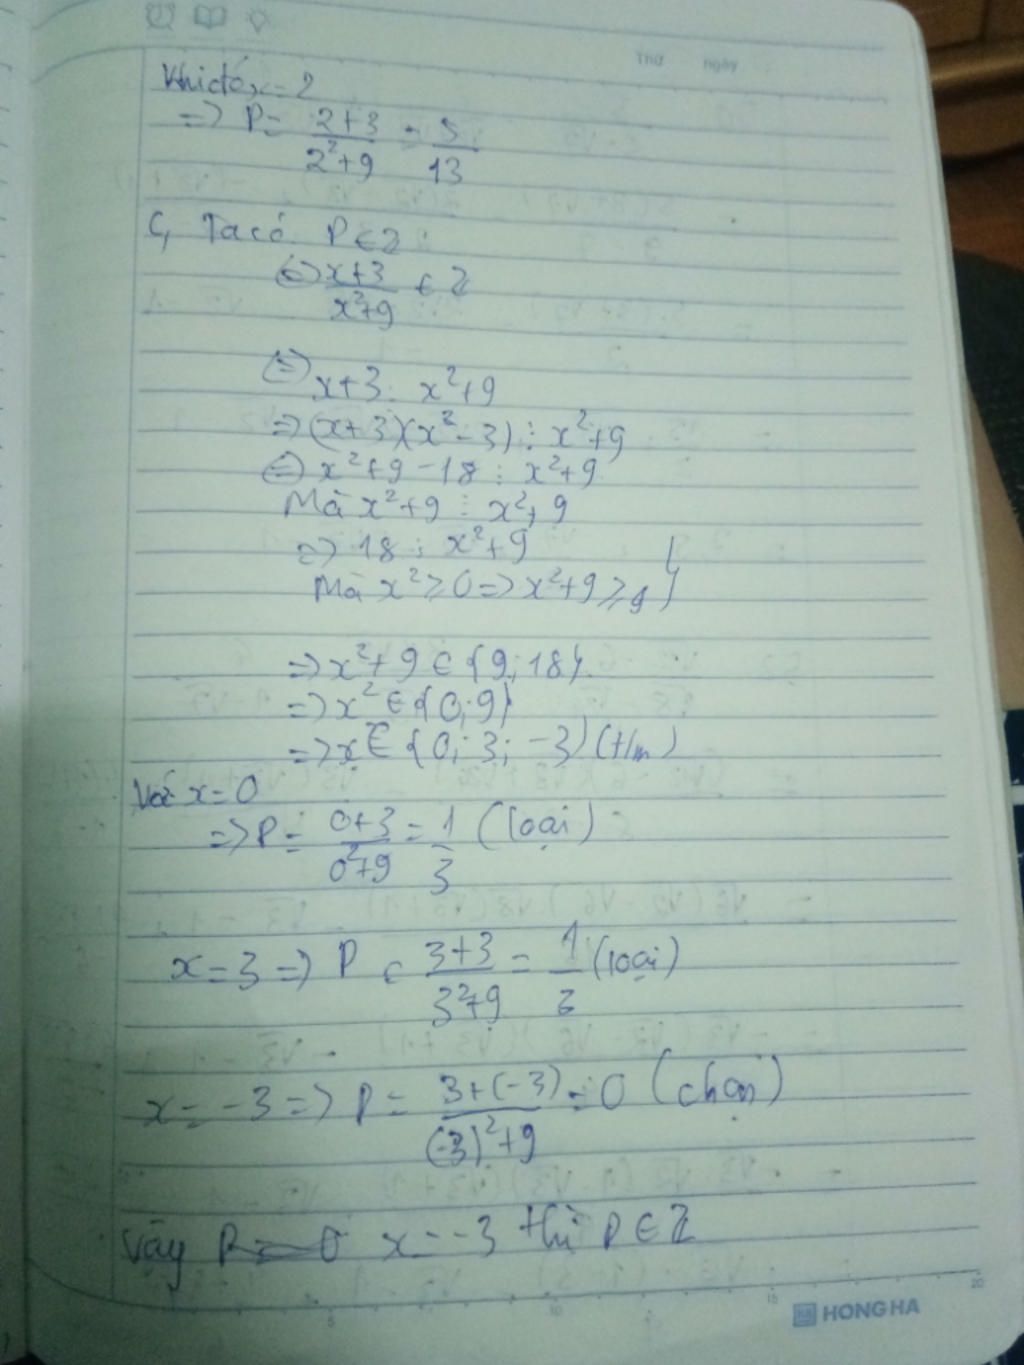 Thứ ngày
Khi đó x = 2
=> P = \frac{2+3}{2^2+9} = \frac{5}{13}
C, Ta có P ∈ Z :
<=> \frac{x+3}{x^2+9} ∈ Z
<=> x+3 ⋮ x^2+9
=> (x+3)(x^2-3) ⋮ x^2+9
<=> x^2+9-18 ⋮ x^2+9
Mà x^2+9 ⋮ x^2+9
=> 18 ⋮ x^2+9
Mà x^2 ≥ 0 => x^2+9 ≥ 9
=> x^2+9 ∈ {9;18}
=> x^2 ∈ {0;9}
=> x ∈ {0; 3; -3} (t/m)
Với x = 0
=> P = \frac{0+3}{0^2+9} = \frac{1}{3} (loại)
x = 3 => P = \frac{3+3}{3^2+9} = \frac{1}{3} (loại)
x = -3 => P = \frac{3+(-3)}{(-3)^2+9} = 0 (chọn)
Vậy x = -3 thì P ∈ Z
5 10 15 20
HONG HA